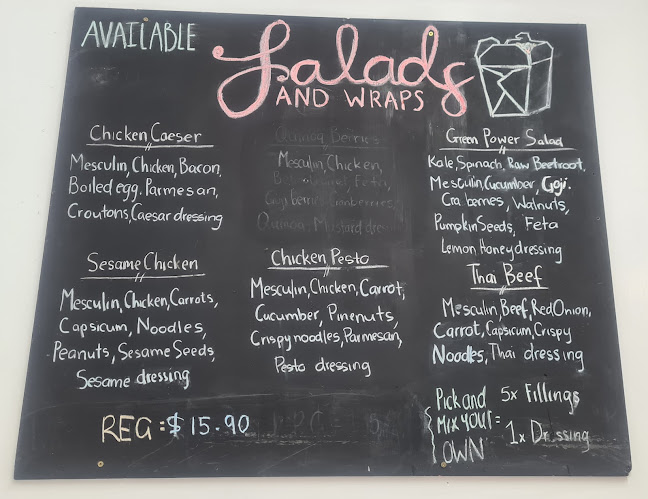 AVAILABLE
Salads
AND WRAPS
Chicken Caeser
Mesculin, Chicken, Bacon,
Boiled egg. Parmesan,
Croutons, Caesar dressing
Quinoa Berries
Mesculin, Chicken,
Feta,
Goji berries, Cranberries,
Quinoa, Mustard
Green Power Salad
Kale, Spinach, Raw Beetroot,
Mesculin, Cucumber, Goji.
Cra berries, Walnuts,
Pumpkin Seeds, Feta
Lemon Honey dressing
Sesame Chicken
Mesculin, Chicken, Carrots,
Capsicum, Noodles,
Peanuts, Sesame Seeds,
Sesame dressing
Chicken Pesto
Mesculin, Chicken, Carrot,
Cucumber, Pinenuts,
Crispy noodles, Parmesan,
Pesto dressing
Thai Beef
Mesculin, Beef, Red Onion,
Carrot, Capsicum, Crispy
Noodles, Thai dressing
REG = $15.90
Pick and
MIX YOUR =
OWN
5x Fillings
1x Dressing